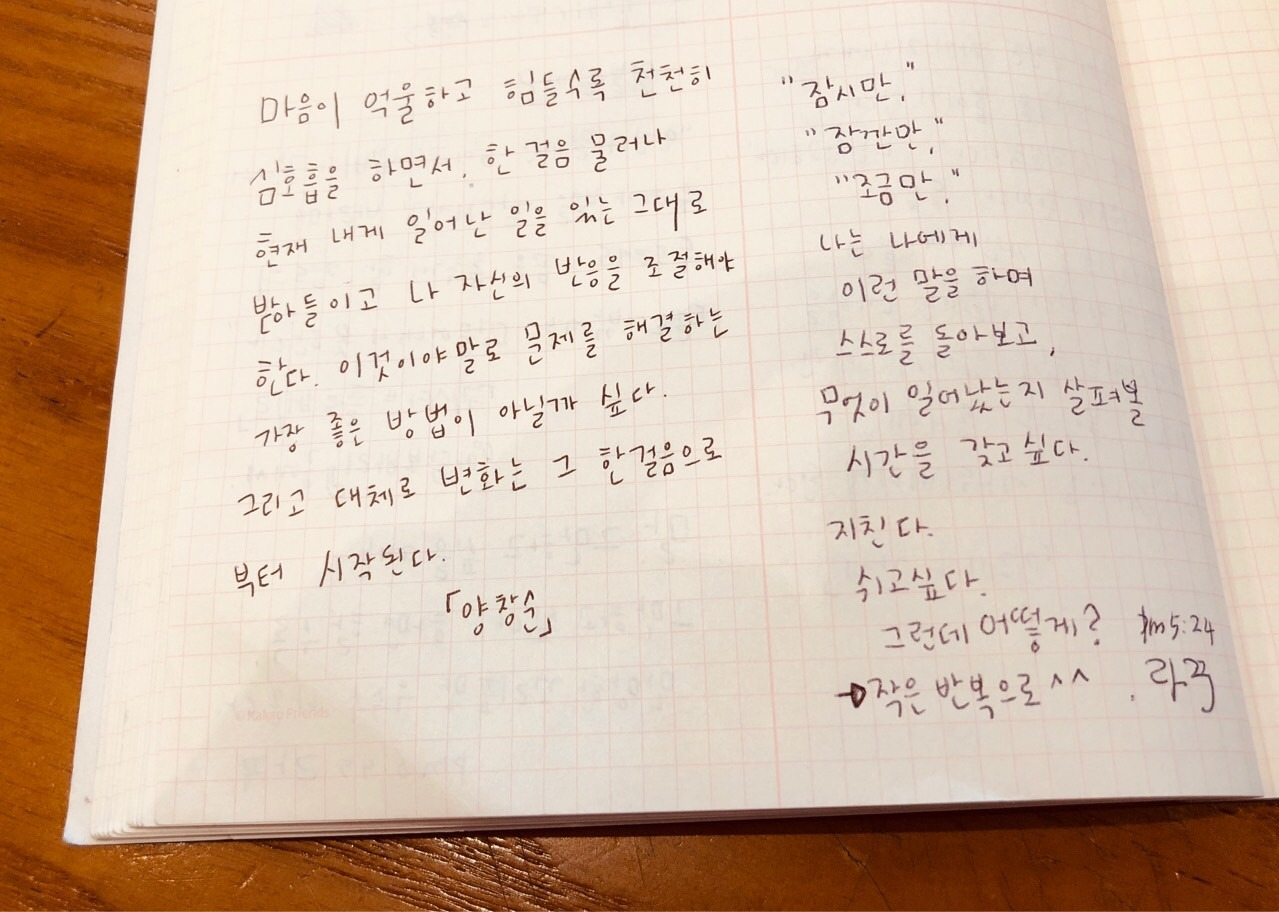 마음이 억울하고 힘들수록 천천히
심호흡을 하면서, 한 걸음 물러나
현재 내게 일어난 일을 있는 그대로
받아들이고 나 자신의 반응을 조절해야
한다. 이것이야말로 문제를 해결하는
가장 좋은 방법이 아닐까 싶다.
그리고 대체로 변화는 그 한걸음으로
부터 시작된다.
「양창순」
Kakao Friends
"잠시만,"
"잠깐만,"
"조금만,"
나는 나에게
이런 말을 하며
스스로를 돌아보고,
무엇이 일어났는지 살펴볼
시간을 갖고싶다.
지친다.
쉬고싶다.
그런데 어떻게?
pm 5:24
→작은 반복으로^^